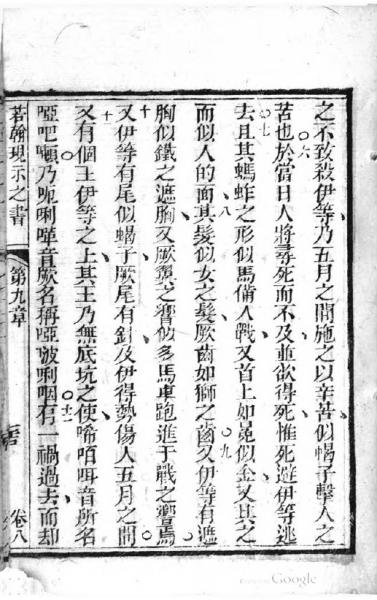 之不致殺伊等乃五月之間施之以辛苦似蝎子擊人之
六
苦也於當日人將尋死而不及並欲得死惟死避伊等逃
七
去且其螞蚱之形似馬備人戰又首上如冕似金又其之
八
而似人的面其髮似女之髮厥齒如獅之齒又伊等有遮
九
胸似鐵之遮胸又厥翼之響似多馬車跑進于戰之響焉
十
又伊等有尾似蝎子厥尾有針及伊得勢傷人五月之間
十一
又有個王伊等之上其王乃無底坑之使唏咟𠵽音所名
啞吧頓乃呃唎㗲音厥名稱啞㪍唎咽有一禍過去而却
十二
若翰現示之書
第九章
卷八
Google